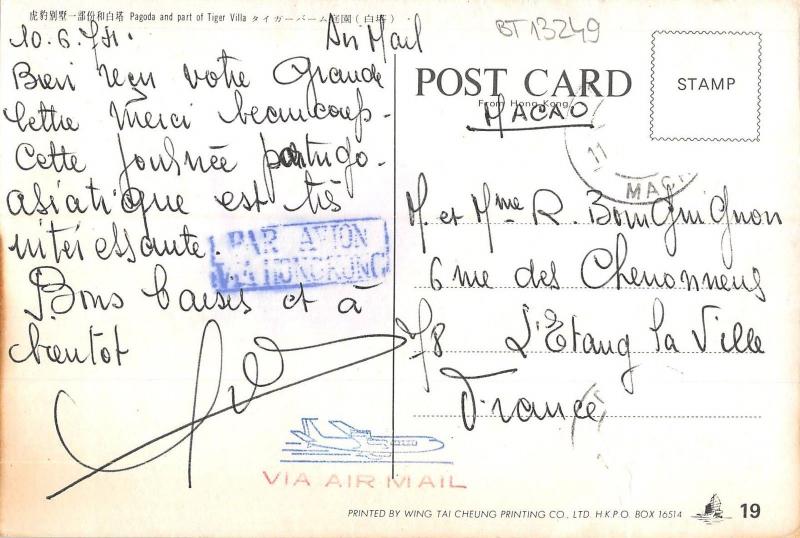 虎豹別墅一部份和白塔 Pagoda and part of Tiger Villa タイガーバーム庭園(白塔)
BT 13249
10.6.71. Air Mail
Bien reçu votre Grande
lettre Merci beaucoup.
Cette journée portugo-
asiatique est très
intéressante.
Bons baisers et à
bientot
PAR AVION
VIA HONGKONG
VIA AIR MAIL
POST CARD
From Hong Kong
MACAO
STAMP
11
MAC
M. et Mme R. Bourguignon
6 rue des Chenonneus
78 L'Etang la Ville
France
PRINTED BY WING TAI CHEUNG PRINTING CO., LTD. H.K.P.O. BOX 16514
19